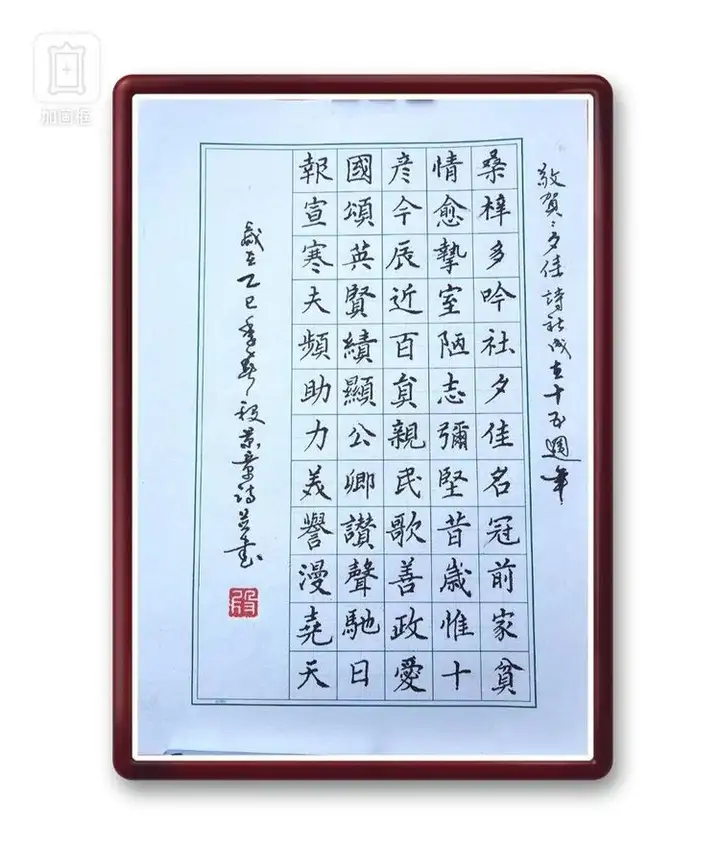 加画框
敬賀:夕佳詩社成立十五週年
桑梓多吟社夕佳名冠前家貧
情愈摯室陋志彌堅昔歲惟十
彦今辰近百員親民歌善政愛
國頌英賢績顯公卿讃聲馳日
報宣寒夫頻助力美譽漫堯天
歲在乙巳季春段景章詩並書
段